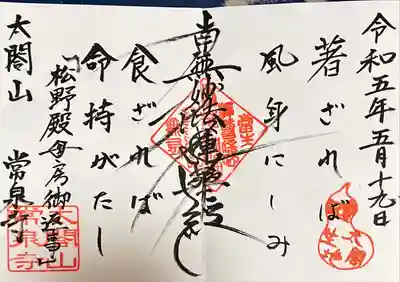 令和五年五月十九日
著ざれば
風身にしみ
南無妙法蓮華経
食ざれば
命持がたし
「松野殿女房御返事」
太閤山 常泉寺
太閤山
常泉寺